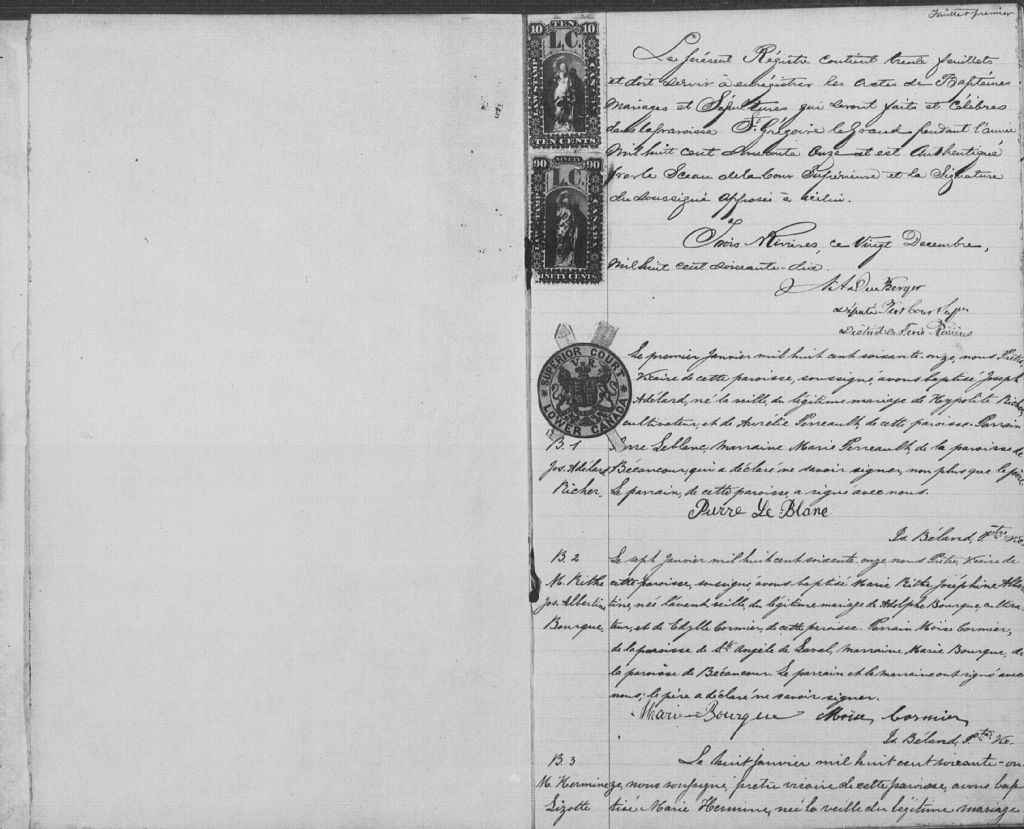 Feuillet premier
TEN
10 10
L.C.
TEN CENTS
NINETY
90 90
L.C.
NINETY CENTS
Le présent Régistre contient trente feuillets
et doit servir à enrégistrer les actes de Baptêmes
Mariages et Sépultures qui seront faits et célébrés
dans la paroisse St. Grégoire le Grand pendant l'année
mil huit cent soixante onze et est Authentiqué
par le Sceau de la Cour Supérieure et la Signature
du soussigné apposés à icelui.
Trois Rivières, ce Vingt Decembre,
mil huit cent soixante-dix.
Berger
Député
District des Trois Rivières
SUPERIOR COURT
V. R.
LOWER CANADA
Le premier Janvier mil huit cent soixante-onze, nous Prêtre
Vicaire de cette paroisse, soussigné, avons baptisé Joseph
Adélard, né la veille, du légitime mariage de Hyppolite Richer
cultivateur, et de Aurélie Perreault, de cette paroisse. Parrain
B. 1
Pierre Leblanc, marraine Marie Perreault, de la paroisse de
Jos. Adélard
Bécancour, qui a déclaré ne savoir signer, non plus que le père
Richer
Le parrain, de cette paroisse, a signé avec nous.
Pierre Le Blanc
Is. Béland, Ptre. Vic.
B. 2
Le sept Janvier mil huit cent soixante-onze nous Prêtre, Vicaire de
M. Rithe
cette paroisse, soussigné, avons baptisé Marie Rithe Joséphine Alber
Jos. Albertine
tine, née l'avant veille, du légitime mariage de Adolphe Bourque, cultiva
Bourque
teur, et de Edylle Cormier, de cette paroisse. Parrain Moïse Cormier,
de la paroisse de Ste. Angèle de Laval, marraine Marie Bourque, de
la paroisse de Bécancour. Le parrain et la marraine ont signé avec
nous; le père a déclaré ne savoir signer.
Marie Bourque Moïse Cormier
Is. Béland, Ptre. Vic.
B. 3
Le huit janvier mil huit cent soixante-on
M. Hermine
ze, nous soussigné, prêtre vicaire de cette paroisse, avons bap
Lizotte
tisé Marie Hermine, née la veille du légitime mariage